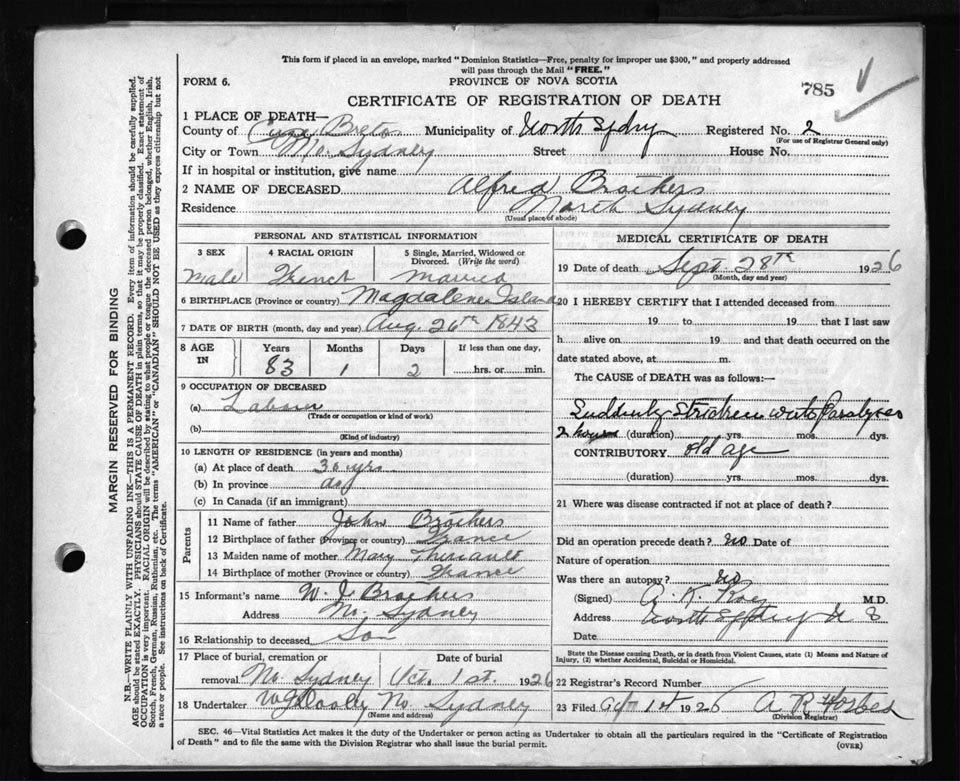 This form if placed in an envelope, marked "Dominion Statistics—Free, penalty for improper use $300," and properly addressed
will pass through the Mail "FREE."
FORM 6.
PROVINCE OF NOVA SCOTIA
785
CERTIFICATE OF REGISTRATION OF DEATH
1 PLACE OF DEATH—
County of Cape Breton Municipality of North Sydney Registered No. 2
(For use of Registrar General only)
City or Town No. Sydney Street House No.
If in hospital or institution, give name
2 NAME OF DECEASED Alfred Brothers
Residence North Sydney
(Usual place of abode)
PERSONAL AND STATISTICAL INFORMATION
3 SEX 4 RACIAL ORIGIN 5 Single, Married, Widowed or
Divorced. (Write the word)
Male French Married
6 BIRTHPLACE (Province or country) Magdalene Island
7 DATE OF BIRTH (month, day and year) Aug. 26th 1843
8 AGE IN Years Months Days If less than one day,
83 1 2 hrs. or min.
9 OCCUPATION OF DECEASED
(a) Labour
(Trade or occupation or kind of work)
(b)
(Kind of industry)
10 LENGTH OF RESIDENCE (in years and months)
(a) At place of death 30 yrs
(b) In province
(c) In Canada (if an immigrant)
Parents
11 Name of father John Brothers
12 Birthplace of father (Province or country) France
13 Maiden name of mother Mary Theriault
14 Birthplace of mother (Province or country) France
15 Informant's name W. J Brothers
Address No. Sydney
16 Relationship to deceased Son
17 Place of burial, cremation or Date of burial
removal No. Sydney Oct. 1st. 1926
18 Undertaker No Sydney
(Name and address)
MEDICAL CERTIFICATE OF DEATH
19 Date of death Sept 28th 1926
(Month, day and year)
20 I HEREBY CERTIFY that I attended deceased from
19 to 19 that I last saw
h alive on 19 and that death occurred on the
date stated above, at m.
The CAUSE of DEATH was as follows:—
Suddenly stricken with Paralyses
2 hours (duration) yrs. mos. dys.
CONTRIBUTORY old age
(duration) yrs. mos. dys.
21 Where was disease contracted if not at place of death?
Did an operation precede death? no Date of
Nature of operation
Was there an autopsy? no
(Signed) M.D.
Address North Sydney N S
Date
State the Disease causing Death, or in death from Violent Causes, state (1) Means and Nature of
Injury, (2) whether Accidental, Suicidal or Homicidal.
22 Registrar's Record Number
23 Filed Oct 1st 1926 A R Forbes
(Division Registrar)
SEC. 46—Vital Statistics Act makes it the duty of the Undertaker or person acting as Undertaker to obtain all the particulars required in the "Certificate of Registration
of Death" and to file the same with the Division Registrar who shall issue the burial permit.
(OVER)
MARGIN RESERVED FOR BINDING
N.B.—WRITE PLAINLY WITH UNFADING INK—THIS IS A PERMANENT RECORD. Every item of information should be carefully supplied.
AGE should be stated EXACTLY. PHYSICIANS should STATE CAUSE OF DEATH in plain terms, so that it may be properly classified. Exact statement of
OCCUPATION is very important. RACIAL ORIGIN will be described by stating to what people or tongue the deceased person belonged, whether English, Irish,
Scotch, French, German, Russian, Ruthenian, etc. The terms "AMERICAN" or "CANADIAN" SHOULD NOT BE USED as they express citizenship but not
a race or people. See instructions on back of Certificate.